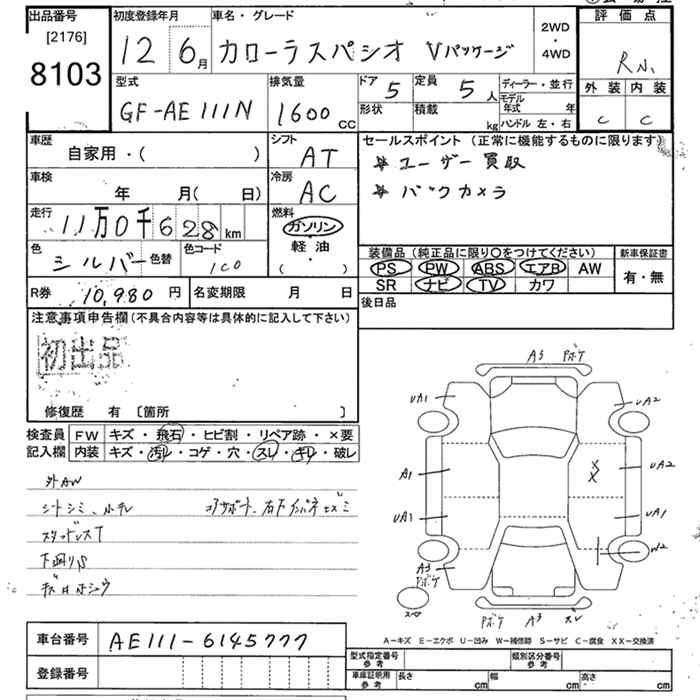 出品番号 初度登録年月 車名・グレード 評価点
[2176] 12 6月 カローラスパシオ Vパッケージ 2WD ・ 4WD R
8103
型式 排気量 ドア 5 定員 5人 ディーラー・並行 外装 内装
GF-AE111N 1600 CC 形状 積載 kg モデル年式 年 C C
ハンドル 左・右
車歴 シフト セールスポイント (正常に機能するものに限ります)
自家用・( ) AT ユーザー買取
車検 冷房 バックカメラ
年 月( 日) AC
走行 燃料
11万0千628km ガソリン
軽油
( ・ )
色 シルバー 色替 色コード 1C0
装備品 (純正品に限り○をつけてください) 新車保証書
PS PW ABS エアB AW 有・無
SR ナビ TV カワ
R券 10,980円 名変期限 月 日 後日品
注意事項申告欄(不具合内容等は具体的に記入して下さい)
初出品
修復歴 有 [箇所 ]
検査員 FW キズ・飛石・ヒビ割・リペア跡・×要
記入欄 内装 キズ・汚レ・コゲ・穴・スレ・キレ・破レ
外AW
スタッドレスT
下廻りS
A3 ボケ
UA1 UA2
A1 UA2
UA1 UA1
W2
A3 ボケ
スペア
ボケ A3
A−キズ E−エクボ U−凹み W−補修跡 S−サビ C−腐食 XX−交換済
車台番号 AE111-6145777
登録番号
型式指定番号 参考 類別区分番号 参考
車庫証明用 参考 長さ cm 幅 cm 高さ cm